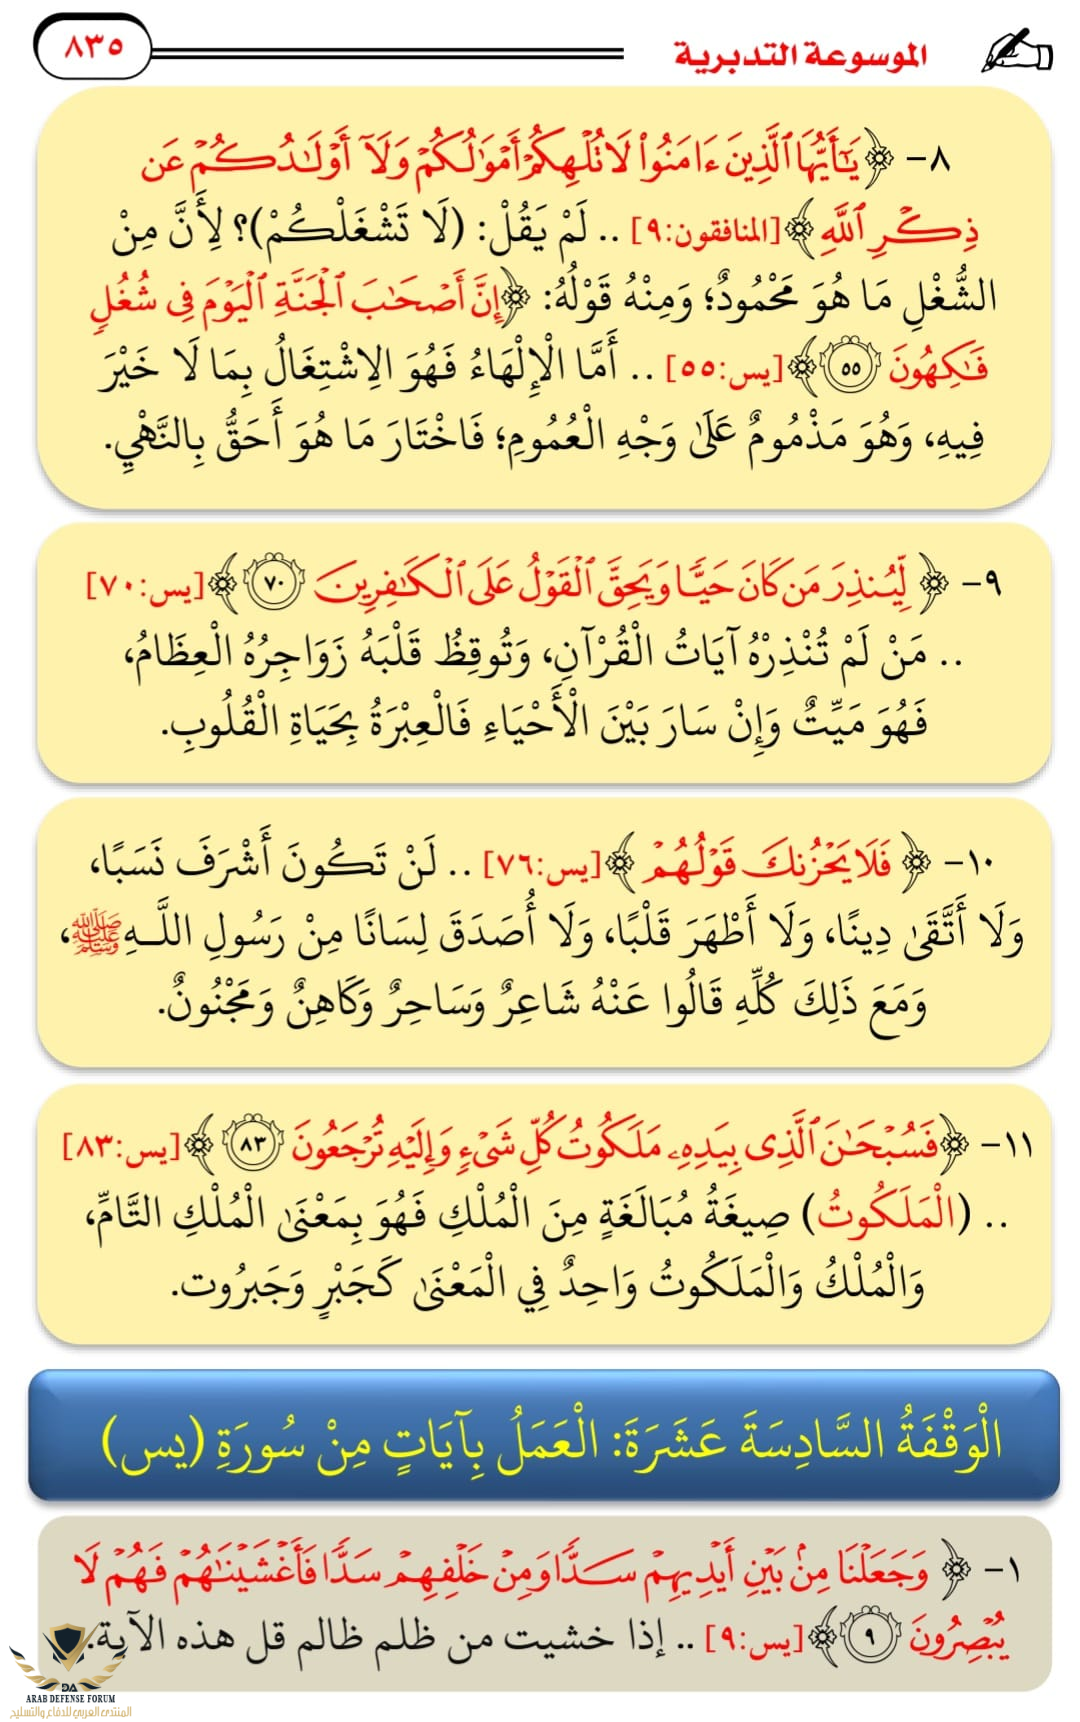 الموسوعة التدبرية
٨٣٥
٨- ﴿يَٰٓأَيُّهَا ٱلَّذِينَ ءَامَنُوا۟ لَا تُلْهِكُمْ أَمْوَٰلُكُمْ وَلَآ أَوْلَٰدُكُمْ عَن
ذِكْرِ ٱللَّهِ﴾ [المنافقون:٩] .. لَمْ يَقُلْ: (لَا تَشْغَلْكُمْ)؟ لِأَنَّ مِنْ
الشُّغْلِ مَا هُوَ مَحْمُودٌ؛ وَمِنْهُ قَوْلُهُ: ﴿إِنَّ أَصْحَٰبَ ٱلْجَنَّةِ ٱلْيَوْمَ فِى شُغُلٍ
فَٰكِهُونَ ٥٥﴾ [يس:٥٥] .. أَمَّا الْإِلْهَاءُ فَهُوَ الِاشْتِغَالُ بِمَا لَا خَيْرَ
فِيهِ، وَهُوَ مَذْمُومٌ عَلَىٰ وَجْهِ الْعُمُومِ؛ فَاخْتَارَ مَا هُوَ أَحَقُّ بِالنَّهْيِ.
٩- ﴿لِّيُنذِرَ مَن كَانَ حَيًّا وَيَحِقَّ ٱلْقَوْلُ عَلَى ٱلْكَٰفِرِينَ ٧٠﴾ [يس:٧٠]
.. مَنْ لَمْ تُنْذِرْهُ آيَاتُ الْقُرْآنِ، وَتُوقِظُ قَلْبَهُ زَوَاجِرُهُ الْعِظَامُ،
فَهُوَ مَيِّتٌ وَإِنْ سَارَ بَيْنَ الْأَحْيَاءِ فَالْعِبْرَةُ بِحَيَاةِ الْقُلُوبِ.
١٠- ﴿فَلَا يَحْزُنكَ قَوْلُهُمْ﴾ [يس:٧٦] .. لَنْ تَكُونَ أَشْرَفَ نَسَبًا،
وَلَا أَتَّقَىٰ دِينًا، وَلَا أَطْهَرَ قَلْبًا، وَلَا أُصَدَقَ لِسَانًا مِنْ رَسُولِ اللَّـهِ ﷺ،
وَمَعَ ذَلِكَ كُلِّهِ قَالُوا عَنْهُ شَاعِرٌ وَسَاحِرٌ وَكَاهِنٌ وَمَجْنُونٌ.
١١- ﴿فَسُبْحَٰنَ ٱلَّذِى بِيَدِهِۦ مَلَكُوتُ كُلِّ شَىْءٍ وَإِلَيْهِ تُرْجَعُونَ ٨٣﴾ [يس:٨٣]
.. (الْمَلَكُوتُ) صِيغَةُ مُبَالَغَةٍ مِنَ الْمُلْكِ فَهُوَ بِمَعْنَىٰ الْمُلْكِ التَّامِّ،
وَالْمُلْكُ وَالْمَلَكُوتُ وَاحِدٌ فِي الْمَعْنَىٰ كَجَبْرٍ وَجَبرُوت.
الْوَقْفَةُ السَّادِسَةَ عَشَرَةَ: الْعَمَلُ بِآيَاتٍ مِنْ سُورَةِ (يس)
١- ﴿وَجَعَلْنَا مِنۢ بَيْنِ أَيْدِيهِمْ سَدًّا وَمِنْ خَلْفِهِمْ سَدًّا فَأَغْشَيْنَٰهُمْ فَهُمْ لَا
يُبْصِرُونَ ٩﴾ [يس:٩] .. إذا خشيت من ظلم ظالم قل هذه الآية.
DA
ARAB DEFENSE FORUM
المنتدى العربي للدفاع والتسليح